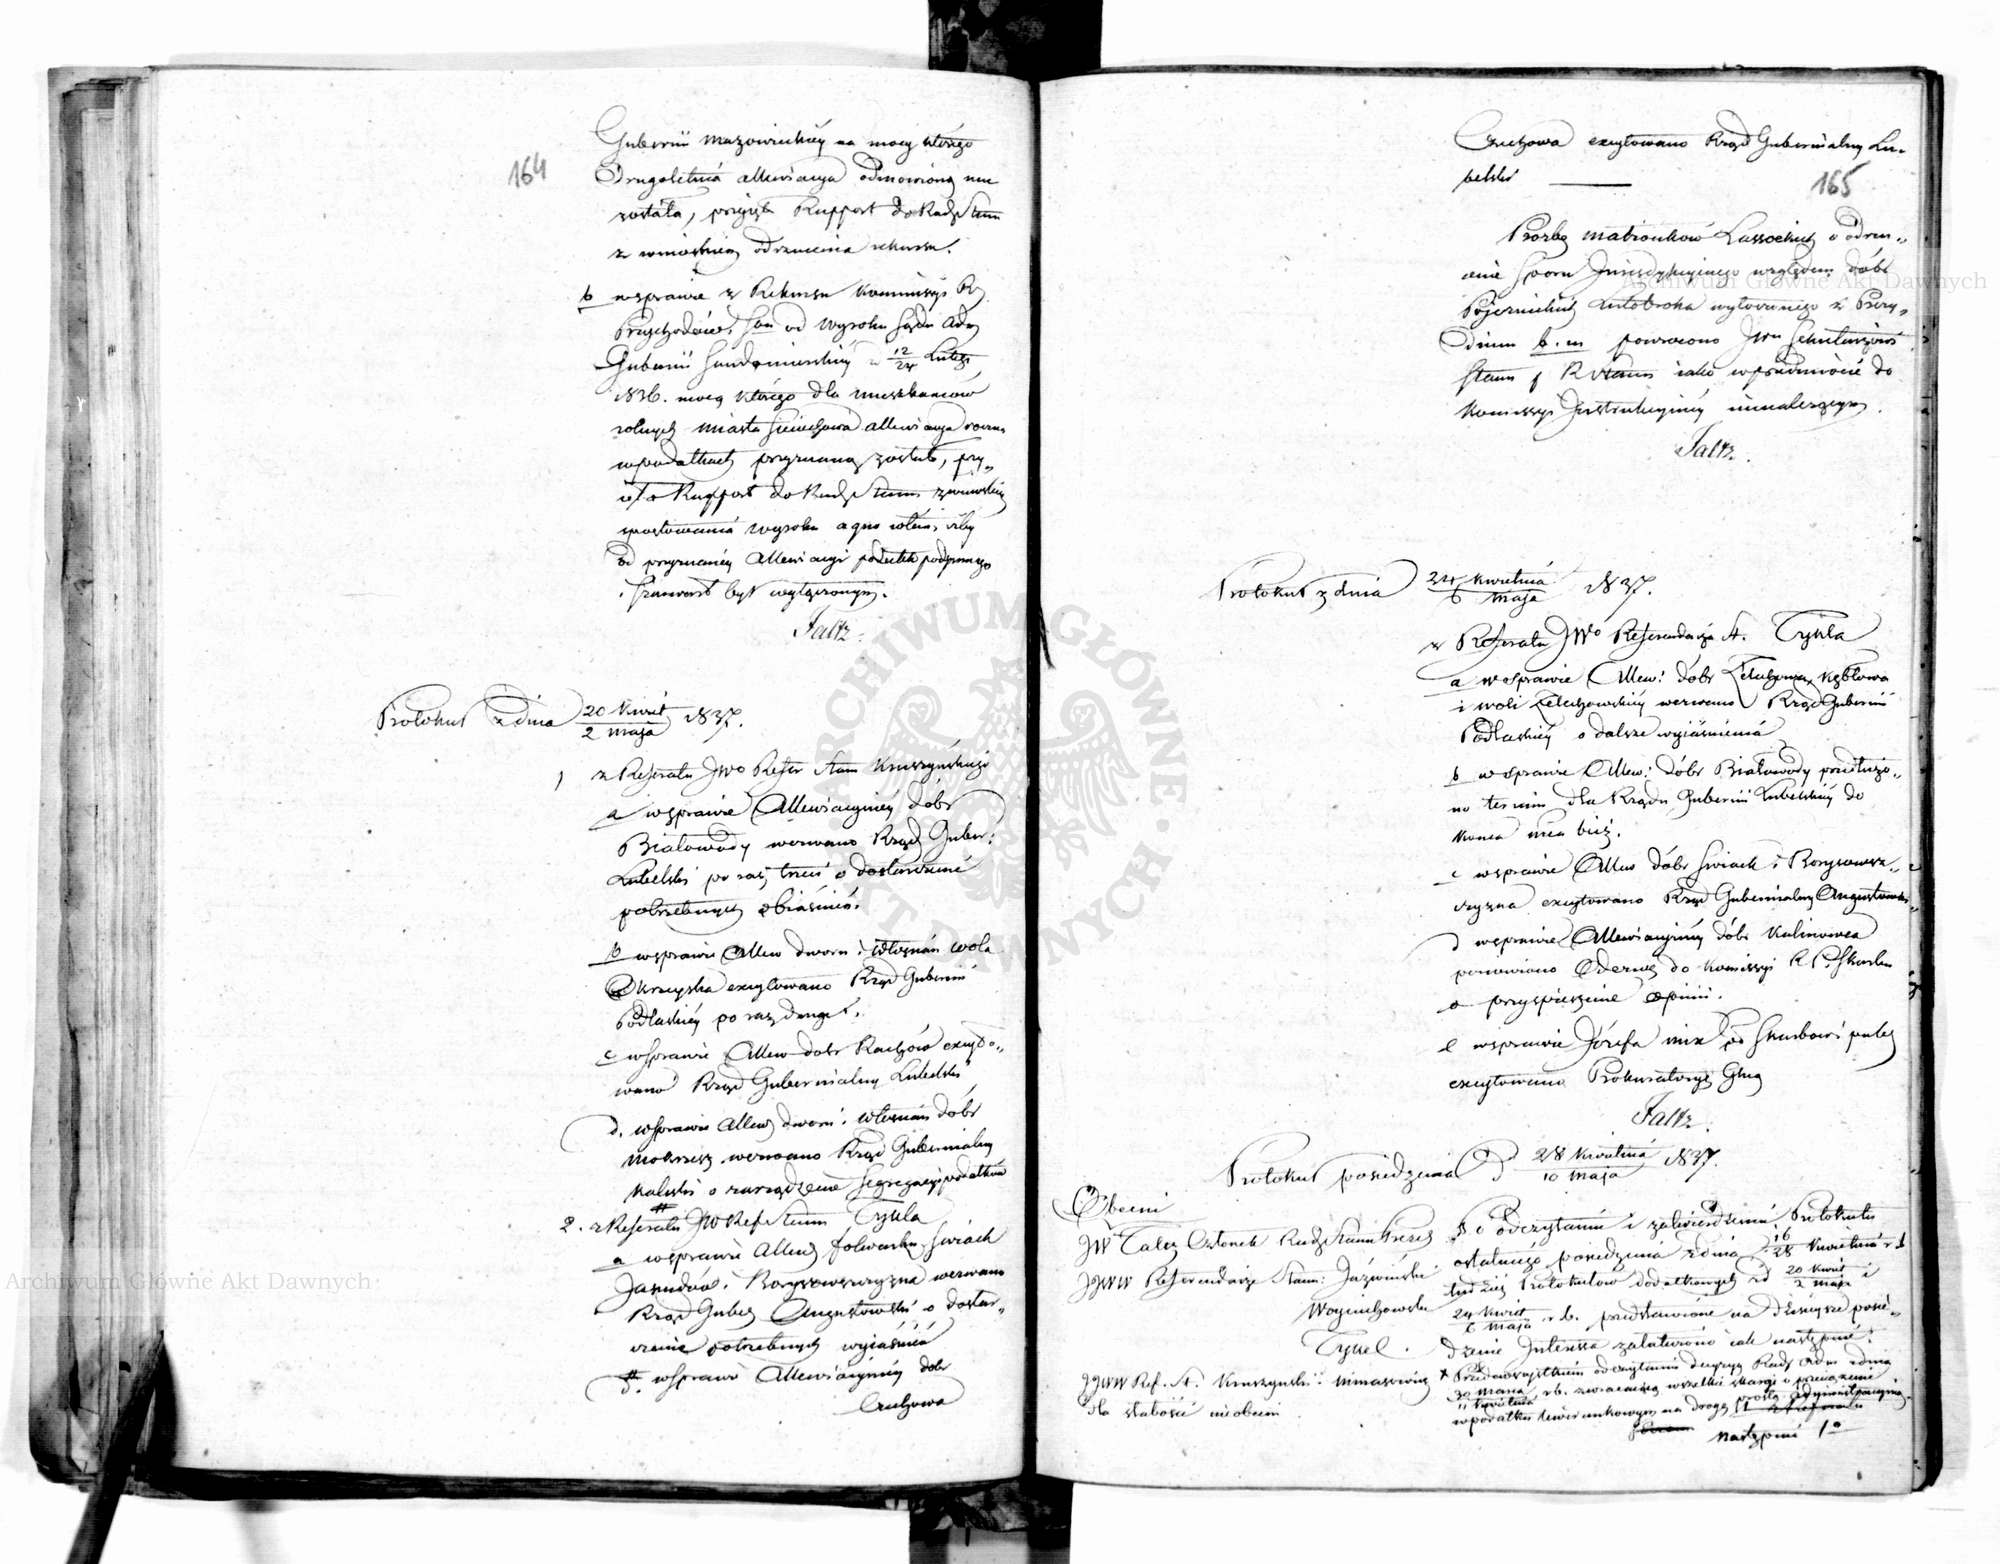 164
Gubernii Mazowieckiéy na mocy którego
Drugoletnia allewiacya odmowioną nie
została, przyięto Rapport do Rady Stanu
z wnioskiem odrzucenia rekursu.
b w sprawie z Rekursu Kommissyi Rz.
Przychodów i Sk. od wyroku Sądu Adm
Gubernii Sandomierskiéy z 12/24 Lutego
1836. mocą którego dla mieszkańców
rolnych miasta Sieciechowa allewiacya roczna
w podatkach przyznaną została, przy-
ięto Rapport do Rady Stanu z wnioskiem
sprostowania wyroku
od przyznanéy Allewiacyi podatek podymnego
szarwark był wyłączonym.
Faltz.
Protokuł z dnia 20 Kwiet / 2 Maja 1837.
1 z Referatu JWo Refer Stanu Kruszyńskiego
a w sprawie Allewiacyinéy dóbr
Białowody wezwano Rząd Guber:
Lubelski po raz trzeci o dostarczenie
potrzebnych obiaśnień.
b w sprawie Allew dworu i włościan Wola
Okrzeyska excytowano Rząd Gubernii
Podlaskiéy po raz drugi.
c w sprawie Allew dóbr Rachów excyto-
wano Rząd Gubernialny Lubelski
d. w sprawie Allew dworu i włościan dóbr
Mokrsesz wezwano Rząd Gubernialny
Kaliski o zarządzenie Segregacyi podatków
2. z Referatu JW Refe Stanu Tykla
a w sprawie Allew folwarku Swiack
Jasudów i Boryszewszczyzna wezwano
Rząd Guber Augustowski o dostar-
czenie potrzebnych wyiaśnień
w sprawie Allewiacyinéy dóbr
Czuchowa
Czuchowa excytowano Rząd Gubernialny Lu-
belski
165
Prozbę małżonków Lassockich o odrzu-
cenie sporu Jurisdykcyinego względem dóbr
wytoczonego z Prezy-
dium b. m powrócono JWu Sekretarzowi
Stanu iako w przedmiocie do
Komissyi Instrukcyinéy nienależącym.
Faltz.
Protokuł z dnia 24 Kwietnia / 6 Maja 1837.
z Referatu JWo Referendarza St. Tykla
a w sprawie Allew: dóbr Żelechowa, Kębłowa
i Woli Żelechowskiéy wezwano Rząd Gubernii
Podlaskiéy o dalsze wyiaśnienia
b w sprawie Allew: dóbr Białowody przedłużo-
no termin dla Rządu Gubernii Lubelskiéy do
końca mca bież.
c w sprawie Allew dóbr Swiack i Boryszewsz-
czyzna excytowano Rząd Gubernialny Augustowski
d w sprawie Allewiacyinéy dóbr Kalinowca
ponowiono Odezwę do Komissyi R P. i Skarbu
o przyspieszenie opinii.
e w sprawie Józefa
excytowano Prokuratoryę Głną
Faltz.
Protokuł posiedzenia D 28 Kwietnia / 10 Maja 1837.
Obecni
JW Członek Rady Stanu Prezes
JJWW Referendarze Stanu: Jaźwiński
Woyciechowski
Tykel.
JJWW Ref. St. Kruszyński i
dla słabości nieobecni
Po odczytaniu i zatwierdzeniu Protokułu
ostatniego posiedzenia z dnia 16/28 Kwietnia r b
tudzież Protokułów dodatkowych z d 20 Kwiet / 2 Maja i
24 Kwiet / 6 Maja r. b. przedstawione na dzisieysze posie-
dzenie Interessa załatwiono iak następuie:
Przedewszystkiem odczytano decyzyą Rady Adm z dnia
30 Marca / 11 Kwietnia r b. zwracaiącą wszelkie skargi o
w podatku liwerunkowym na drogę prostą administracyiną
następnie 1o